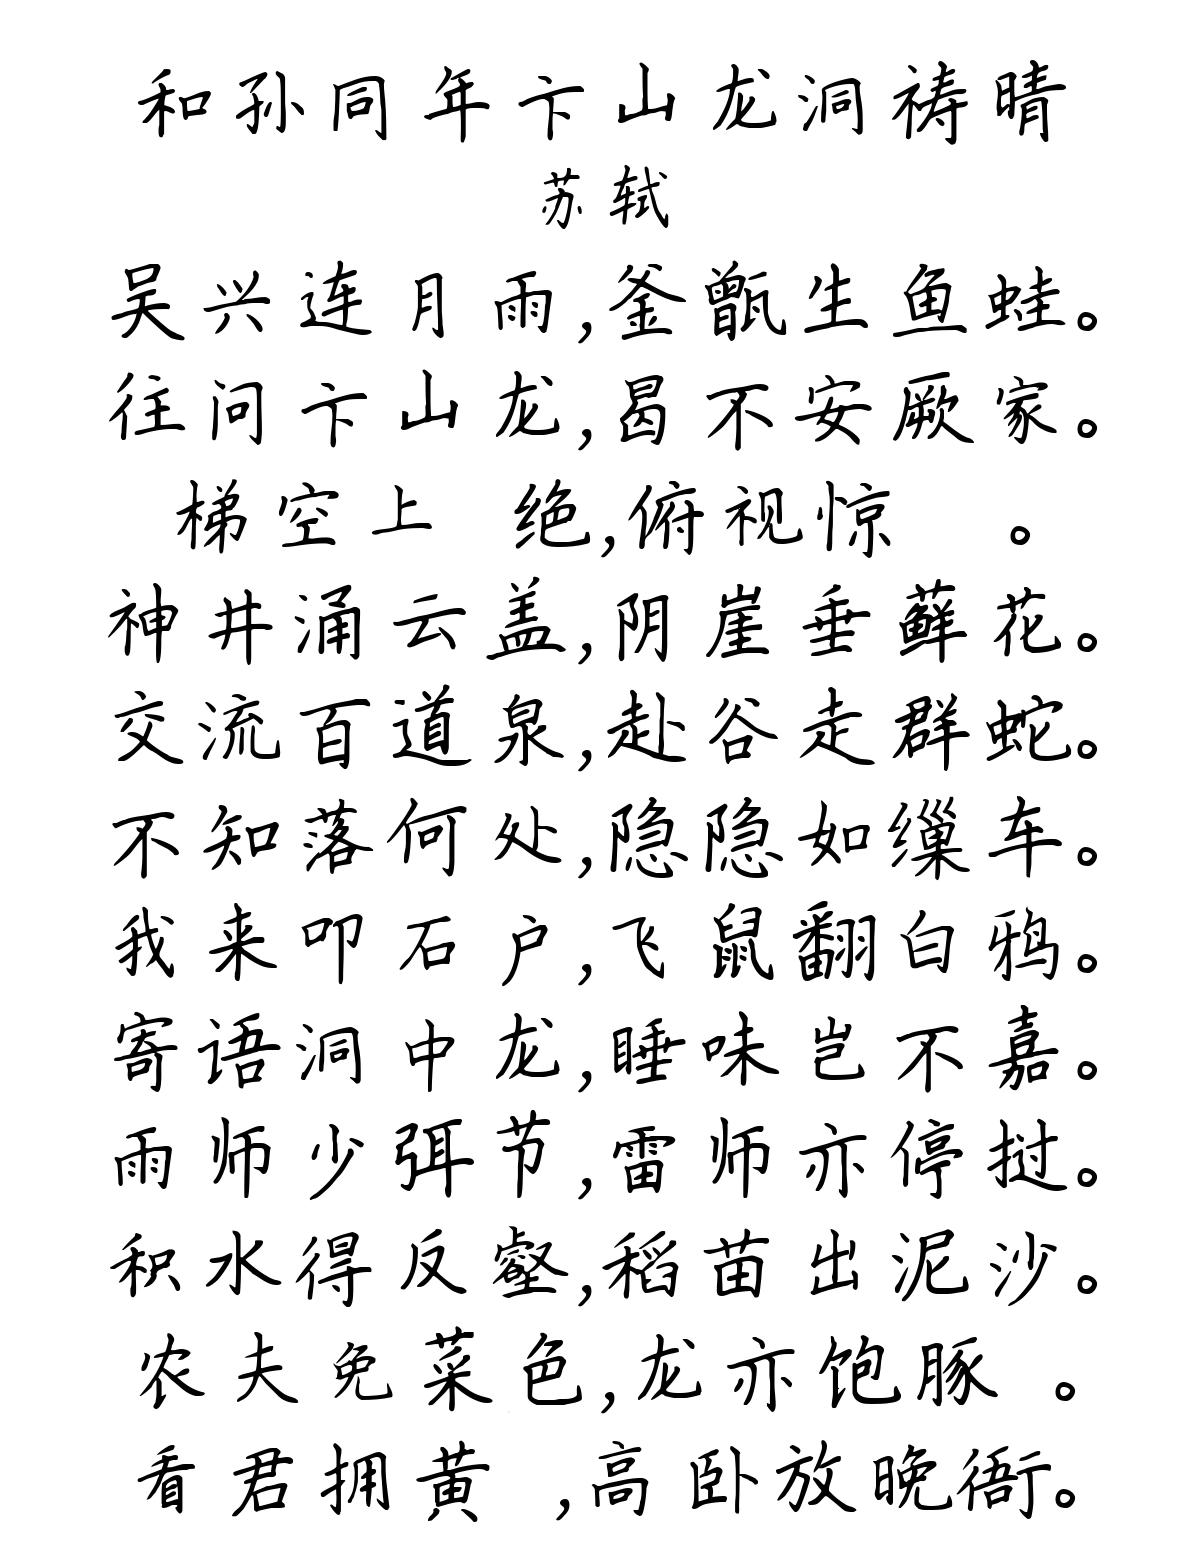 和孙同年卞山龙洞祷晴
苏轼
吴兴连月雨,釜甑生鱼蛙。
往问卞山龙,曷不安厥家。
梯空上 绝,俯视惊 。
神井涌云盖,阴崖垂藓花。
交流百道泉,赴谷走群蛇。
不知落何处,隐隐如缫车。
我来叩石户,飞鼠翻白鸦。
寄语洞中龙,睡味岂不嘉。
雨师少弭节,雷师亦停挝。
积水得反壑,稻苗出泥沙。
农夫免菜色,龙亦饱豚 。
看君拥黄 ,高卧放晚衙。